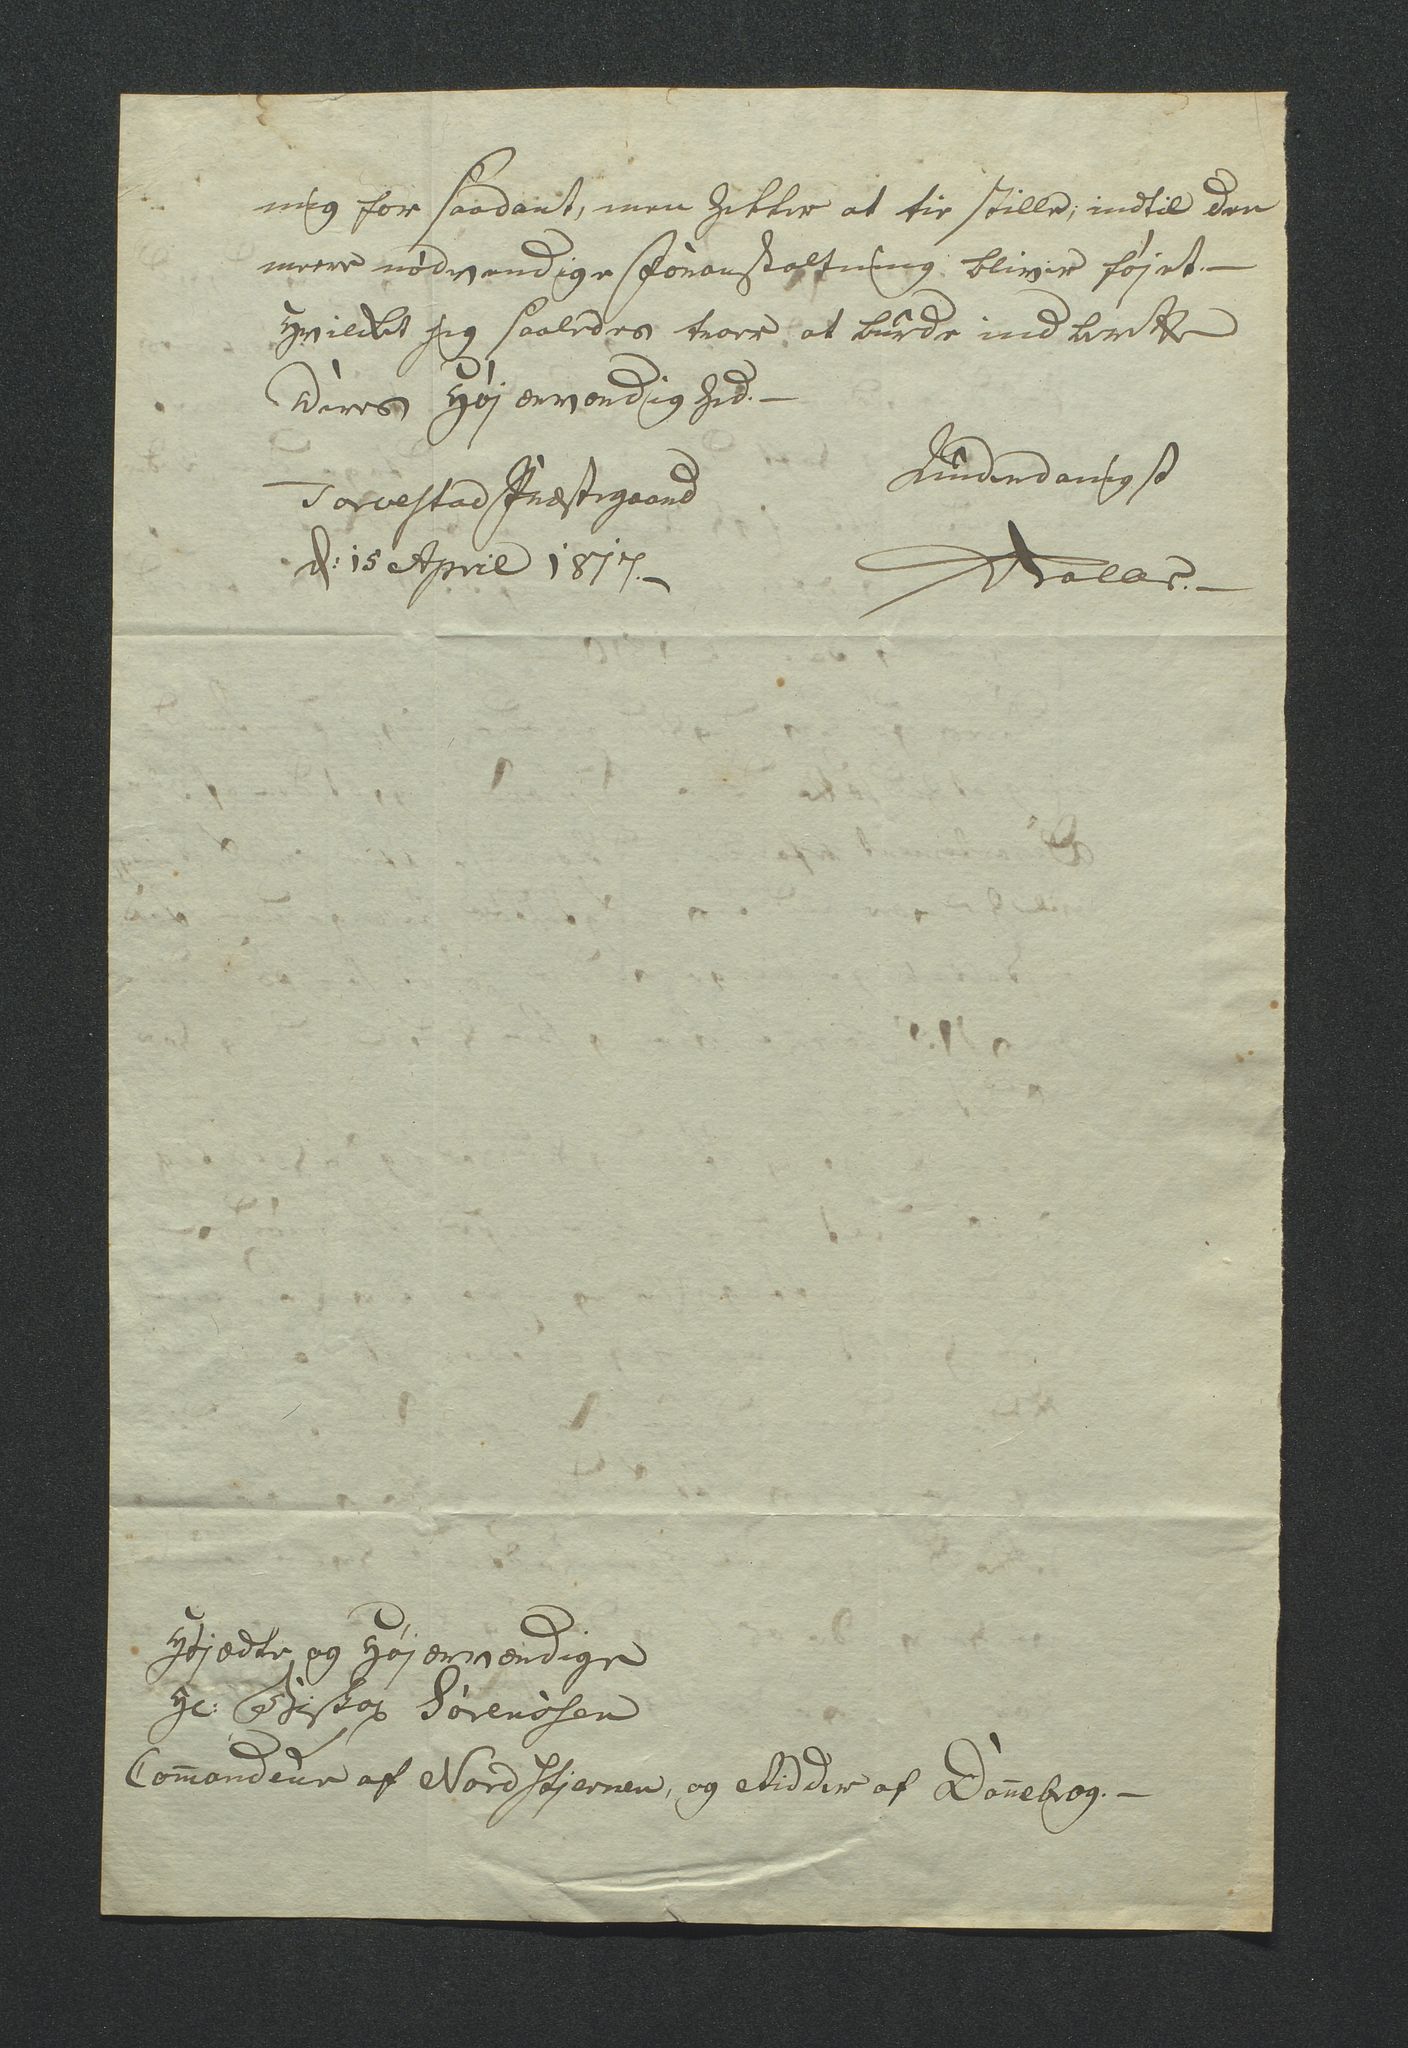 mig for saadant, men heller at tie stille, indtil den
meere nødvendige Foranstaltning bliver føjet.—
Hvilket jeg saaledes troer at burde indberette
Deres Højærværdighed.—
Torvestad Præstegaard
d: 15 April 1817.—
Underdanigst
Højædle og Højærværdige
Hr: Biskop Sørenssen
Com̄andeur af Nordstjernen, og Ridder af Dan̄ebrog.—